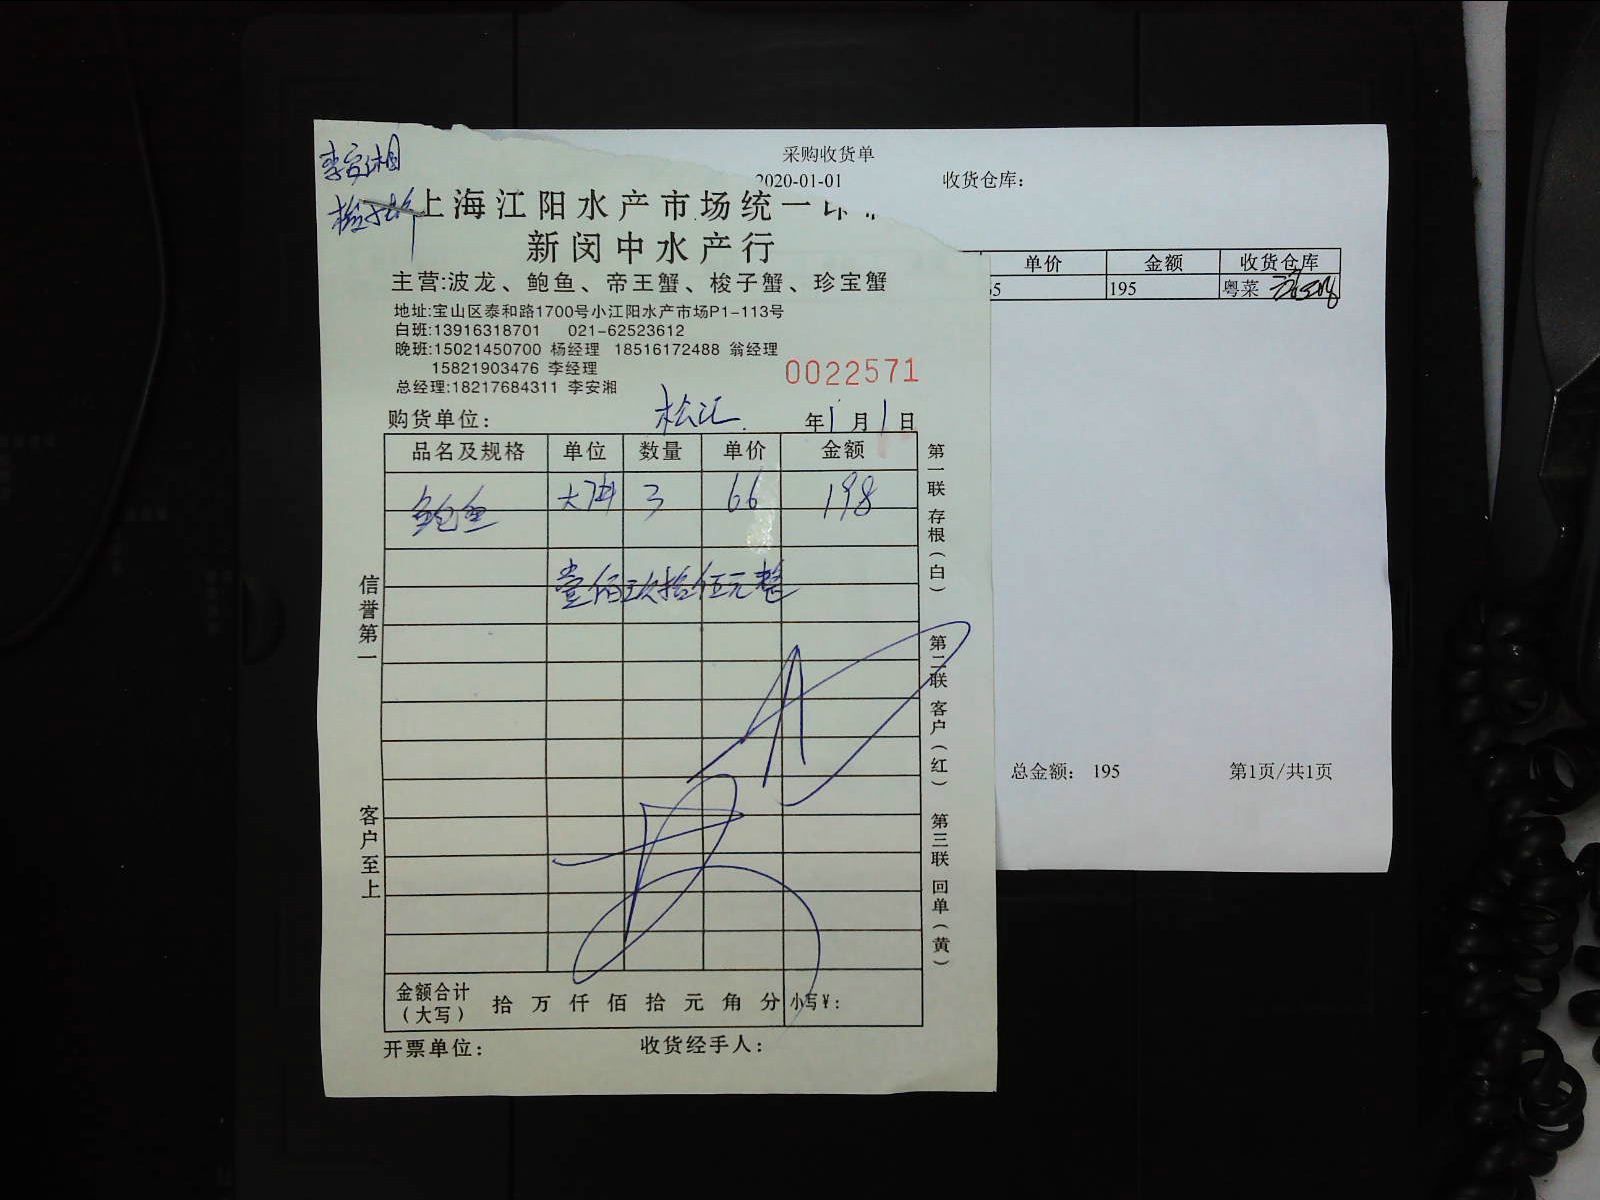 李安湘
采购收货单
2020-01-01 收货仓库：
上海江阳水产市场统一
新闵中水产行
主营:波龙、鲍鱼、帝王蟹、梭子蟹、珍宝蟹
地址:宝山区泰和路1700号小江阳水产市场P1-113号
白班:13916318701 021-62523612
晚班:15021450700 杨经理 18516172488 翁经理
15821903476 李经理
总经理:18217684311 李安湘
0022571
单价 金额 收货仓库
5 195 粤菜
购货单位: 松江 年1月1日
品名及规格 单位 数量 单价 金额
鲍鱼 3 66 198
壹佰玖拾伍元整
信誉第一
客户至上
第一联 存根(白)
第二联 客户(红)
第三联 回单(黄)
总金额： 195 第1页/共1页
金额合计(大写) 拾 万 仟 佰 拾 元 角 分 小写¥:
开票单位: 收货经手人: